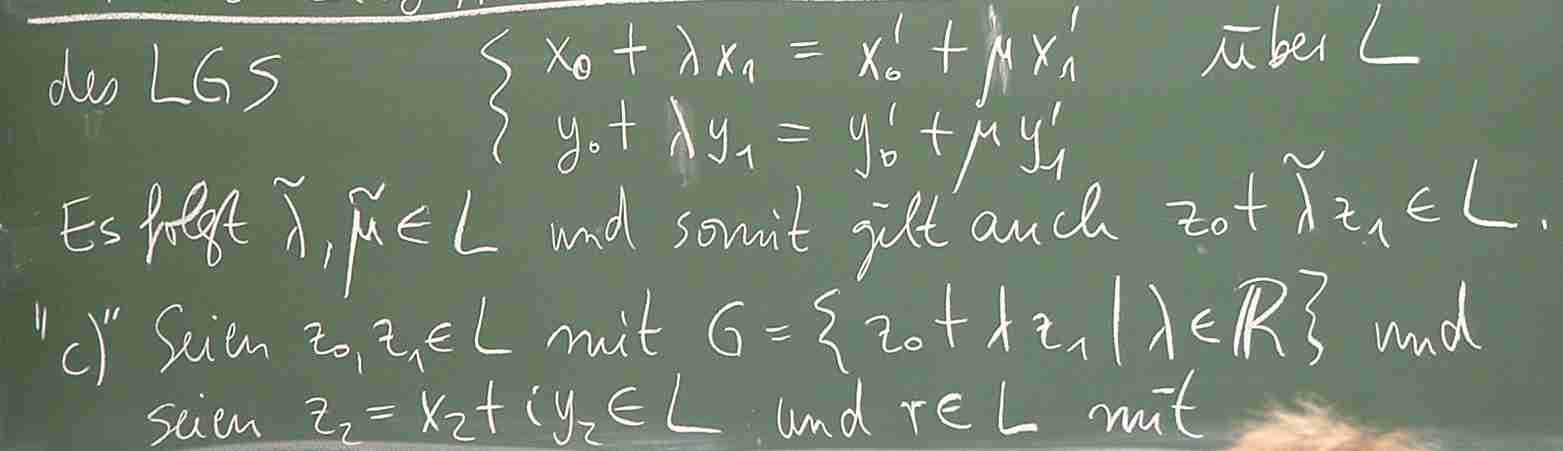 des LGS { x₀ + λx₁ = x₀' + μx₁' über L
y₀ + λy₁ = y₀' + μy₁'
Es folgt λ̃, μ̃ ∈ L und somit gilt auch z₀ + λ̃z₁ ∈ L.
"c)" Seien z₀, z₁ ∈ L mit G = {z₀ + λz₁ | λ ∈ ℝ} und
seien z₂ = x₂ + iy₂ ∈ L und r ∈ L mit